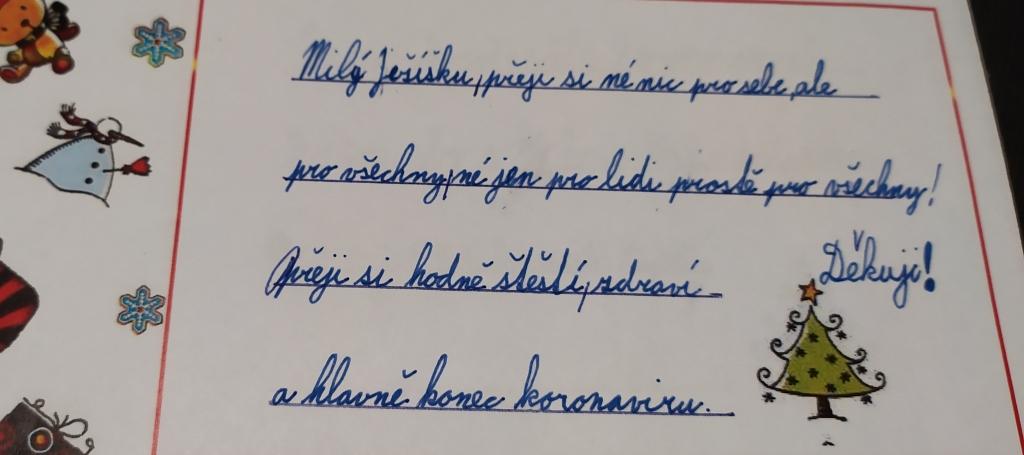 Milý Ježíšku, přeji si né nic pro sebe, ale
pro všechny, né jen pro lidi prostě pro všechny!
Přeji si hodně štěstí, zdraví
Děkuji!
a hlavně konec koronaviru.